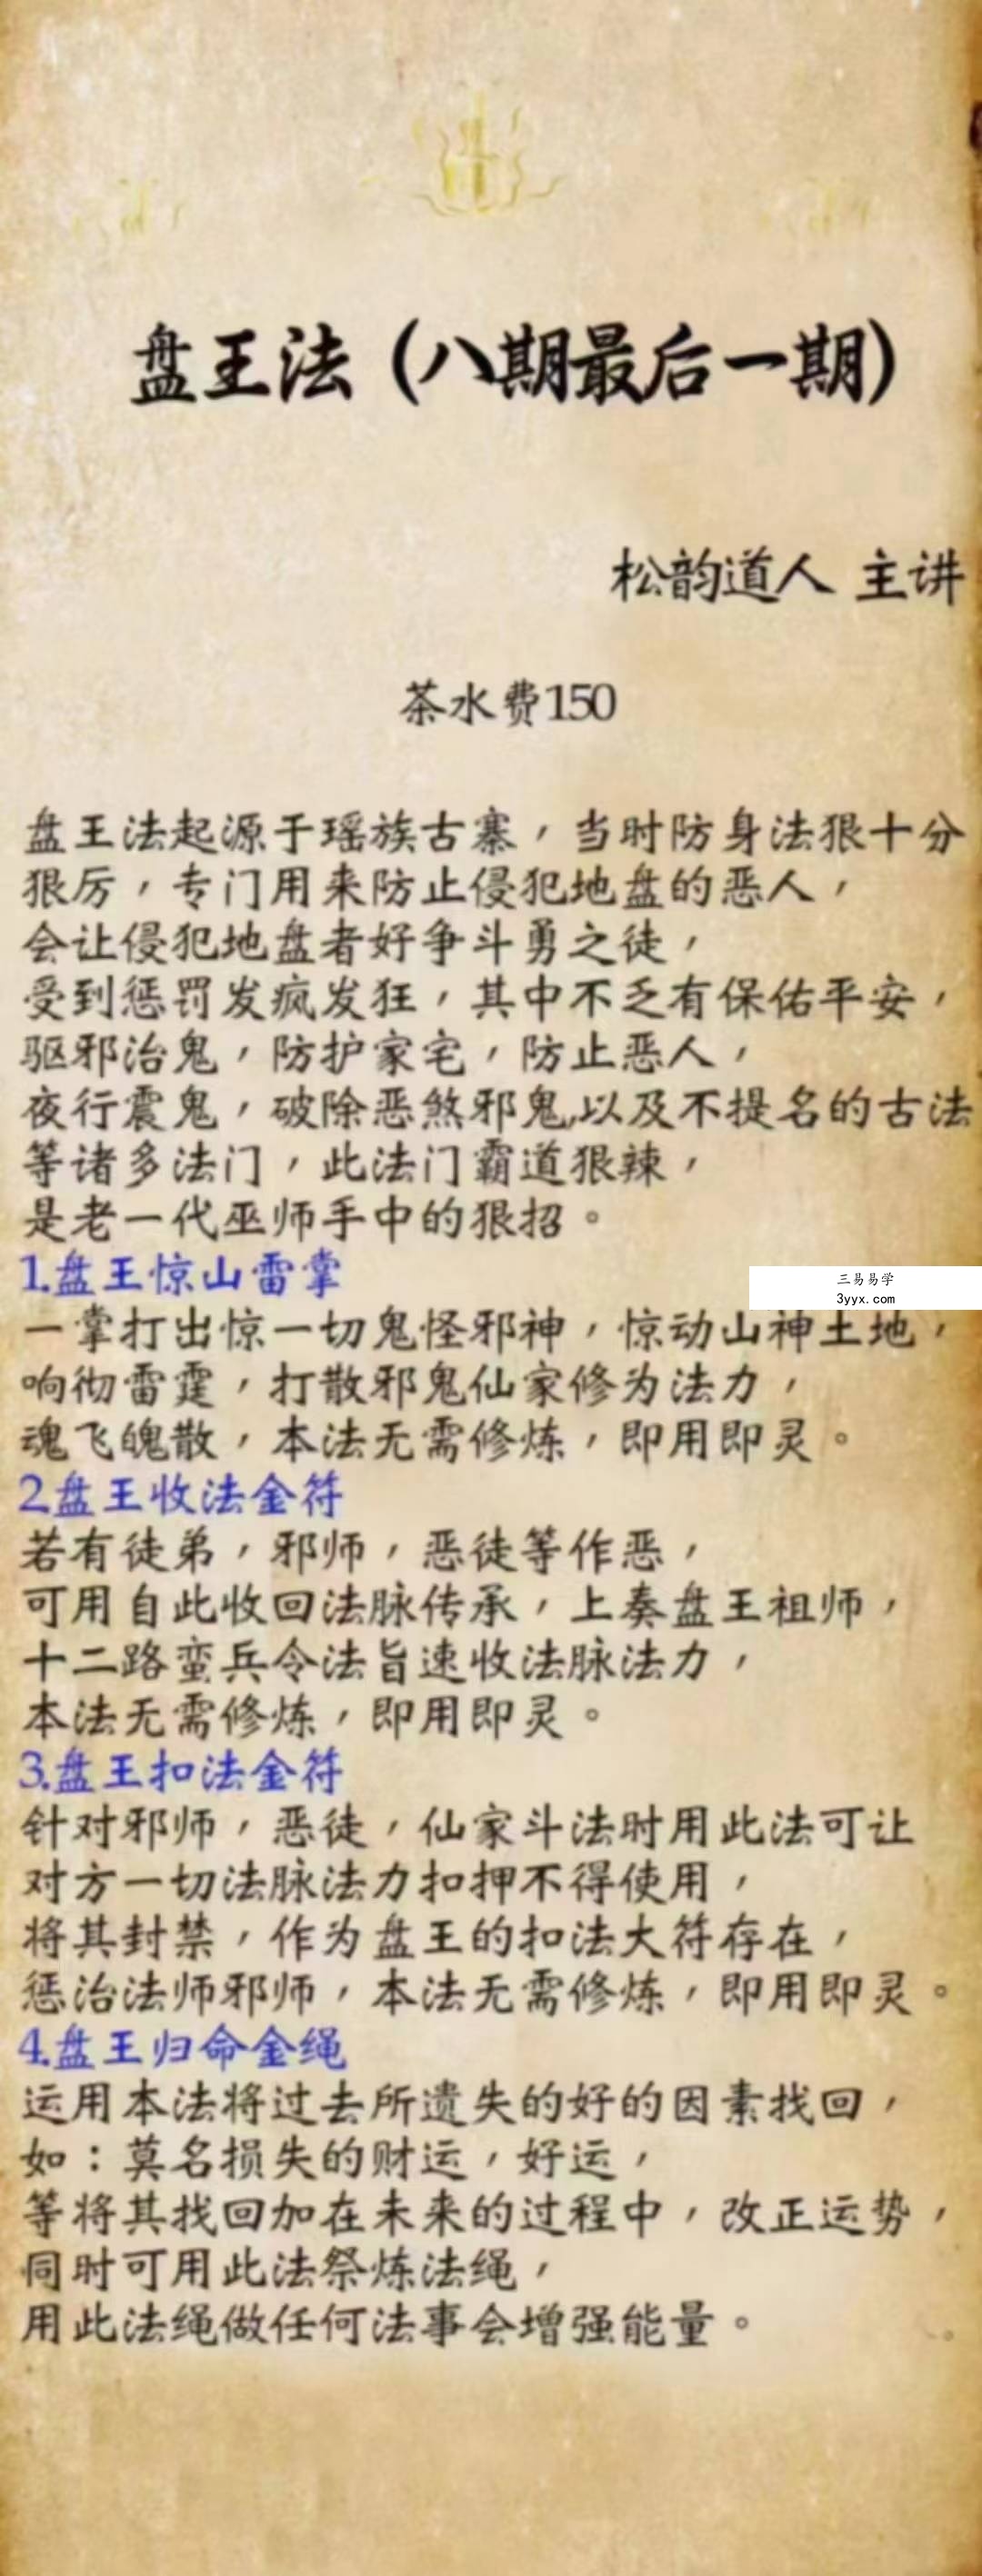 盘王法（八期最后一期）
松韵道人 主讲
茶水费150
盘王法起源于瑶族古寨，当时防身法狠十分
狠厉，专门用来防止侵犯地盘的恶人，
会让侵犯地盘者好争斗勇之徒，
受到惩罚发疯发狂，其中不乏有保佑平安，
驱邪治鬼，防护家宅，防止恶人，
夜行震鬼，破除恶煞邪鬼,以及不提名的古法
等诸多法门，此法门霸道狠辣，
是老一代巫师手中的狠招。
1.盘王惊山雷掌
三易易学
3yyx.com
一掌打出惊一切鬼怪邪神，惊动山神土地，
响彻雷霆，打散邪鬼仙家修为法力，
魂飞魄散，本法无需修炼，即用即灵。
2.盘王收法金符
若有徒弟，邪师，恶徒等作恶，
可用自此收回法脉传承，上奏盘王祖师，
十二路蛮兵令法旨速收法脉法力，
本法无需修炼，即用即灵。
3.盘王扣法金符
针对邪师，恶徒，仙家斗法时用此法可让
对方一切法脉法力扣押不得使用，
将其封禁，作为盘王的扣法大符存在，
惩治法师邪师，本法无需修炼，即用即灵。
4.盘王归命金绳
运用本法将过去所遗失的好的因素找回，
如：莫名损失的财运，好运，
等将其找回加在未来的过程中，改正运势，
同时可用此法祭炼法绳，
用此法绳做任何法事会增强能量。